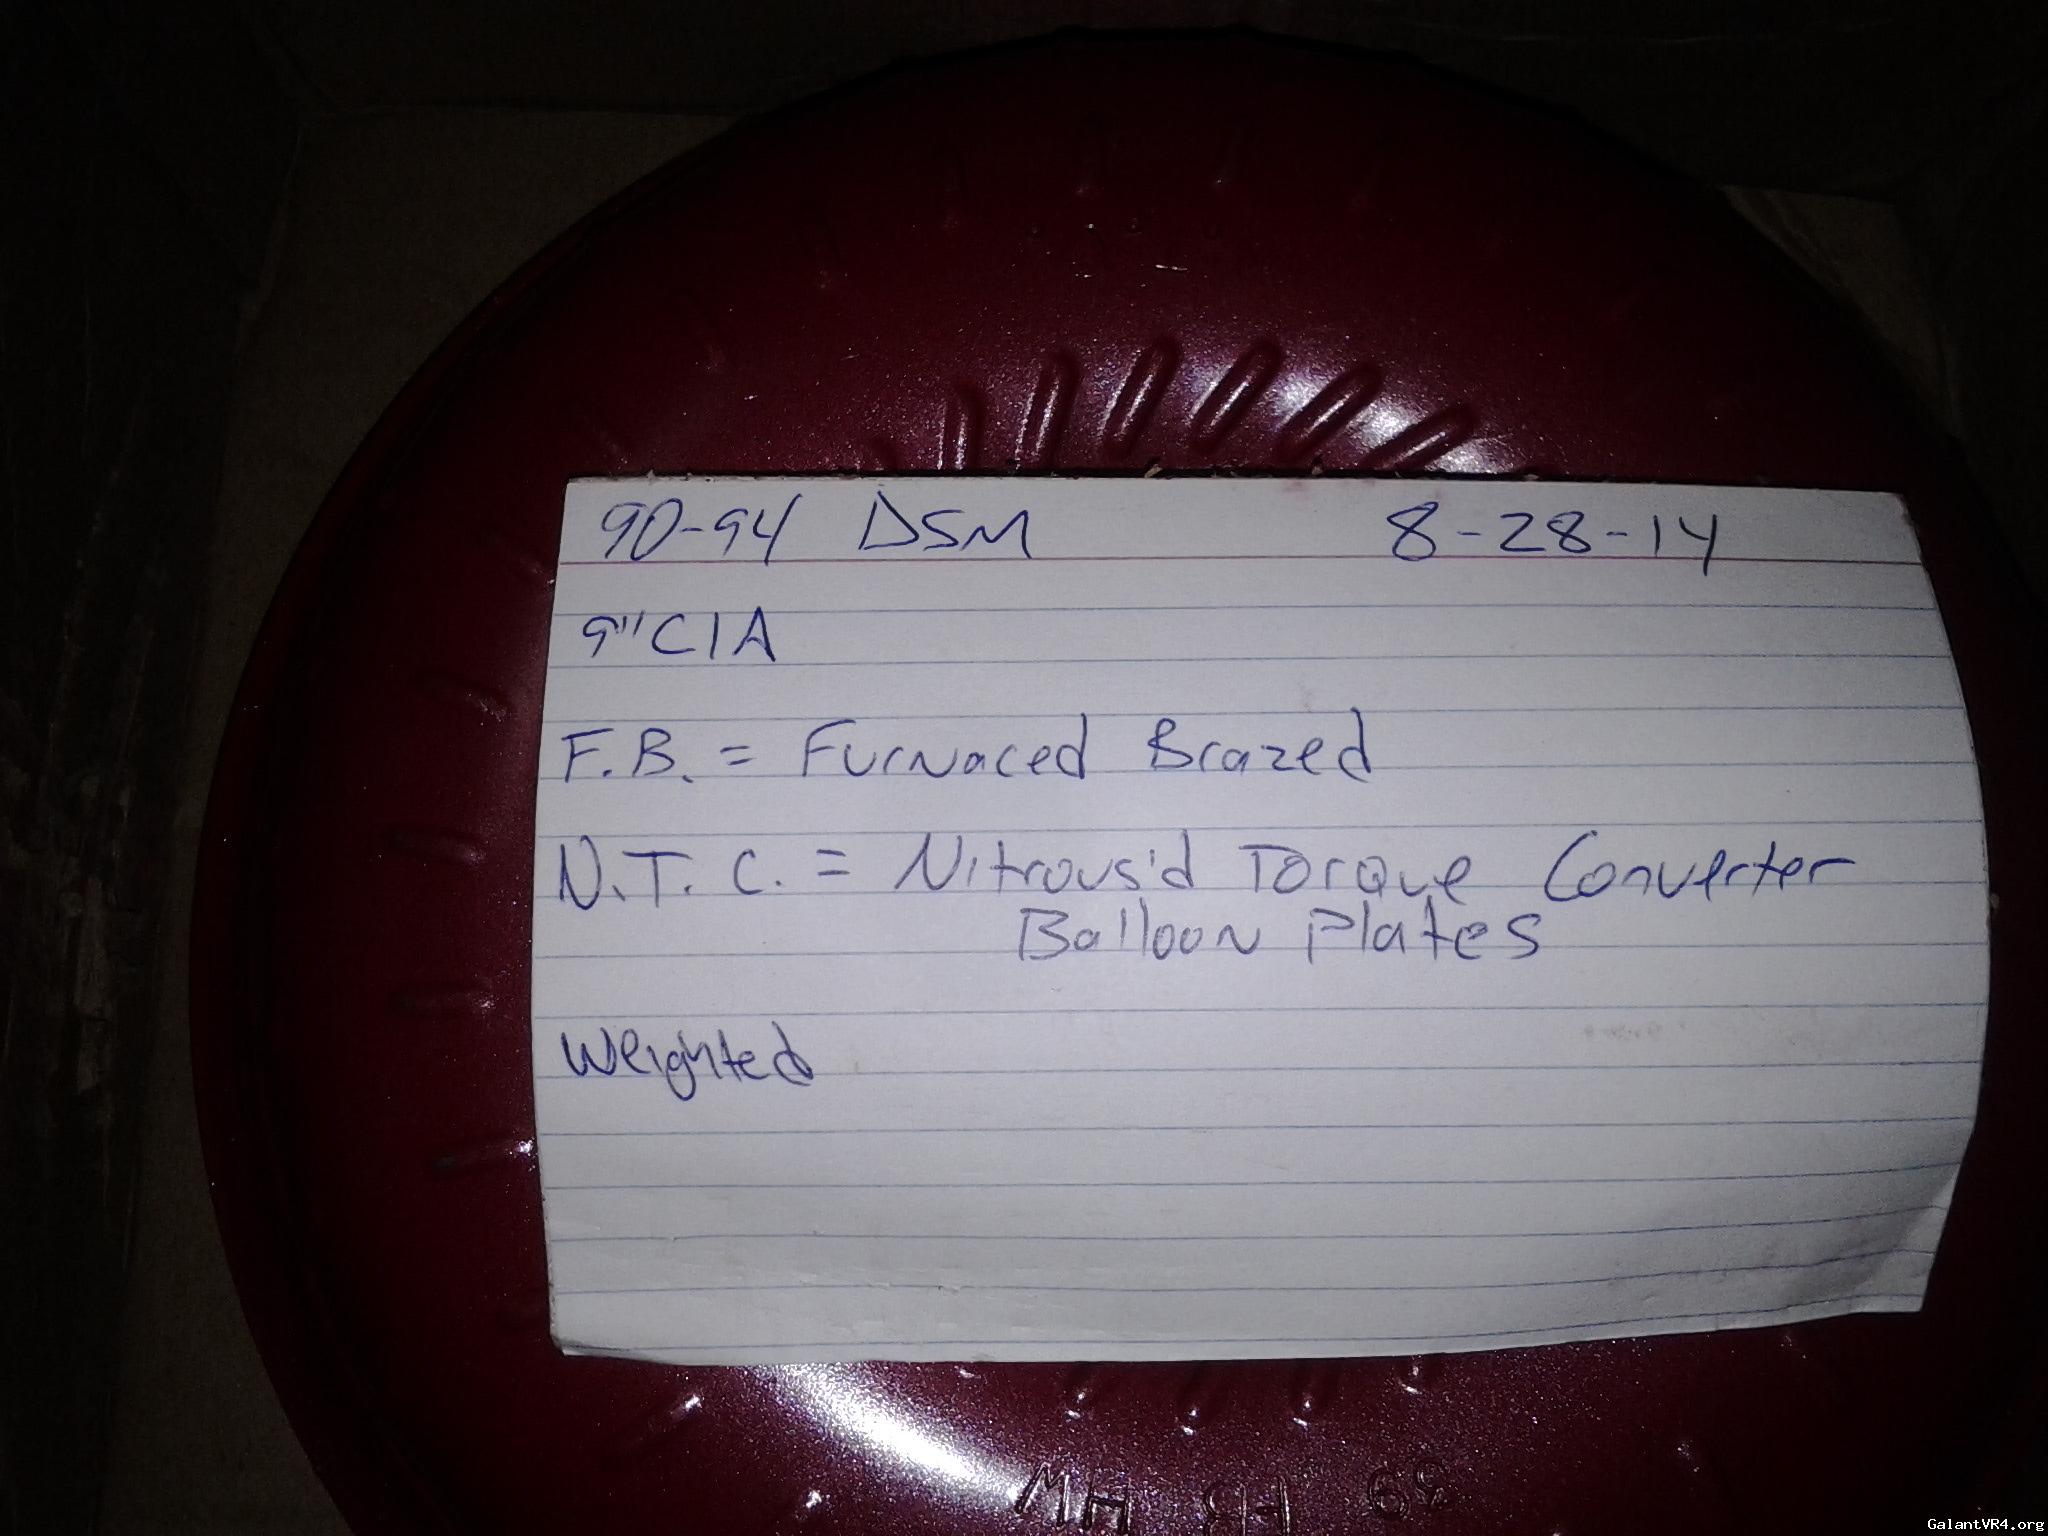 90-94 DSM 8-28-14
9" C1A
F.B. = Furnaced Brazed
N.T.C. = Nitrous'd Torque Converter
Balloon Plates
Weighted
GalantVR4.org